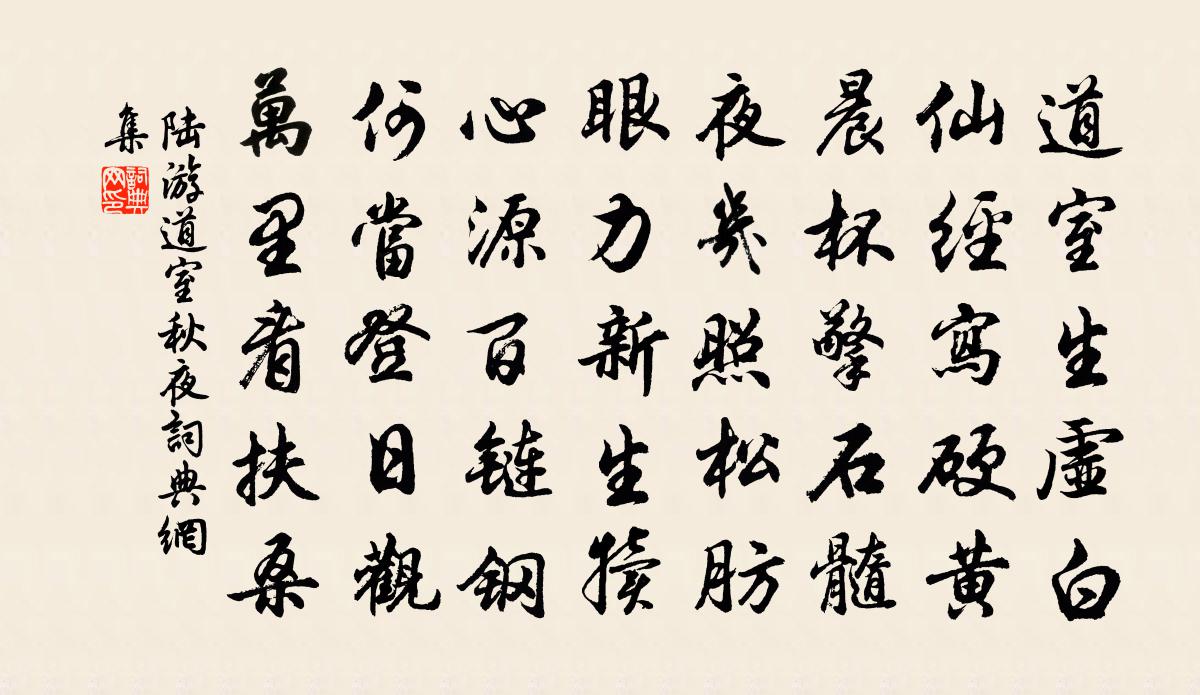 道室生虛白
仙經寫硬黃
晨杯擎石髓
夜幾照松肪
眼力新生犢
心源百鏈鋼
何當登日觀
萬里看扶桑
陸游道室秋夜詞典網
集
詞典
网印